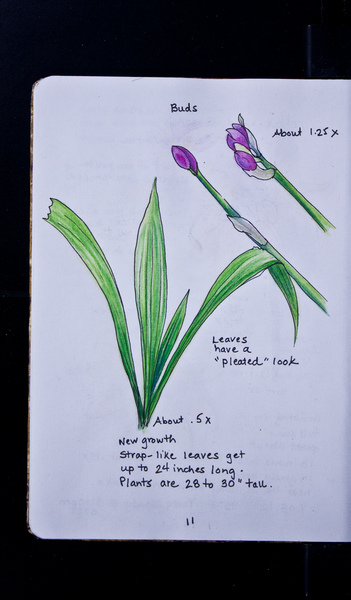 Buds
About 1.25 x
Leaves
have a
"pleated" look
About .5 x
New growth
Strap-like leaves get
up to 24 inches long.
Plants are 28 to 30" tall.
11